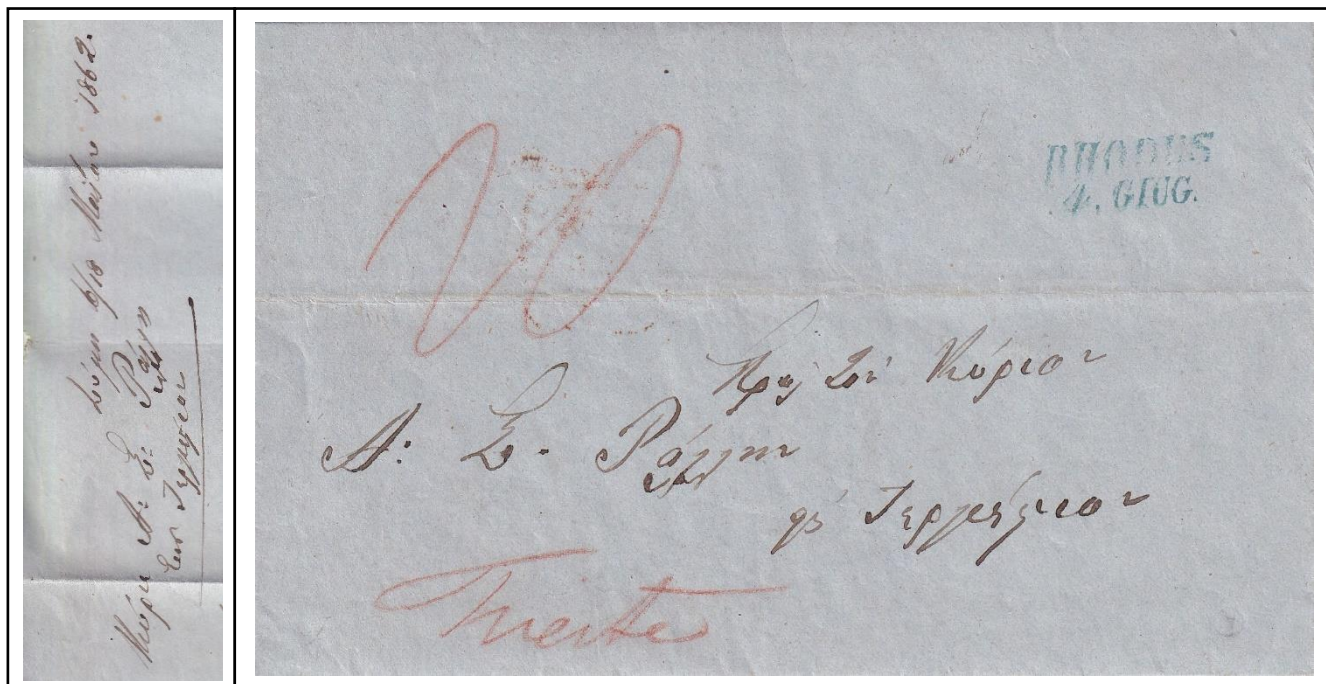 Σύμη 6/18 Μαΐου 1862.
Κύριε Α: Σ: Ράλλη
RHODES
4. GIUG.
Πρὸς τὸν Κύριον
Α: Σ. Ράλλην
εἰς Τεργέστιον
Trieste